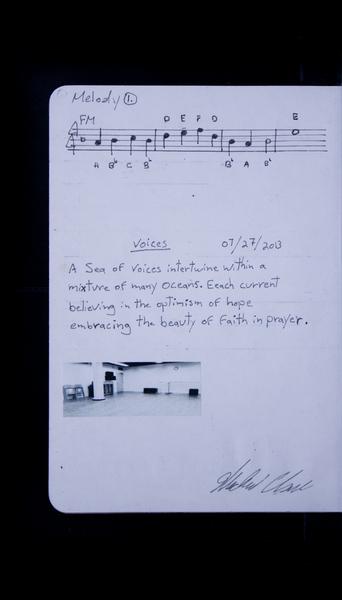 Melody 1.
FM
D E F D E
A Bb C Bb Bb A Bb
Voices 07/27/2013
A Sea of Voices intertwine within a
mixture of many Oceans. Eeach current
believing in the optimism of hope
embracing the beauty of Faith in prayer.